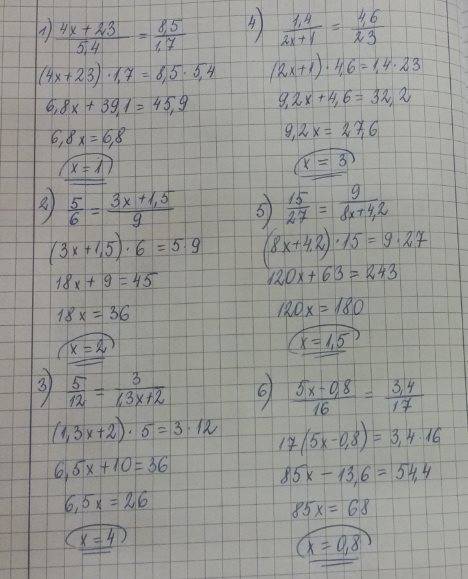 1) (4x+23)/5,4 = 8,5/1,7
(4x+23)·1,7 = 8,5·5,4
6,8x + 39,1 = 45,9
6,8x = 6,8
x = 1
2) 5/6 = (3x+1,5)/9
(3x+1,5)·6 = 5·9
18x + 9 = 45
18x = 36
x = 2
3) 5/12 = 3/(1,3x+2)
(1,3x+2)·5 = 3·12
6,5x+10 = 36
6,5x = 26
x = 4
4) 1,4/(2x+1) = 4,6/23
(2x+1)·4,6 = 1,4·23
9,2x + 4,6 = 32,2
9,2x = 27,6
x = 3
5) 15/27 = 9/(8x+4,2)
(8x+4,2)·15 = 9·27
120x + 63 = 243
120x = 180
x = 1,5
6) (5x-0,8)/16 = 3,4/17
17(5x-0,8) = 3,4·16
85x - 13,6 = 54,4
85x = 68
x = 0,8